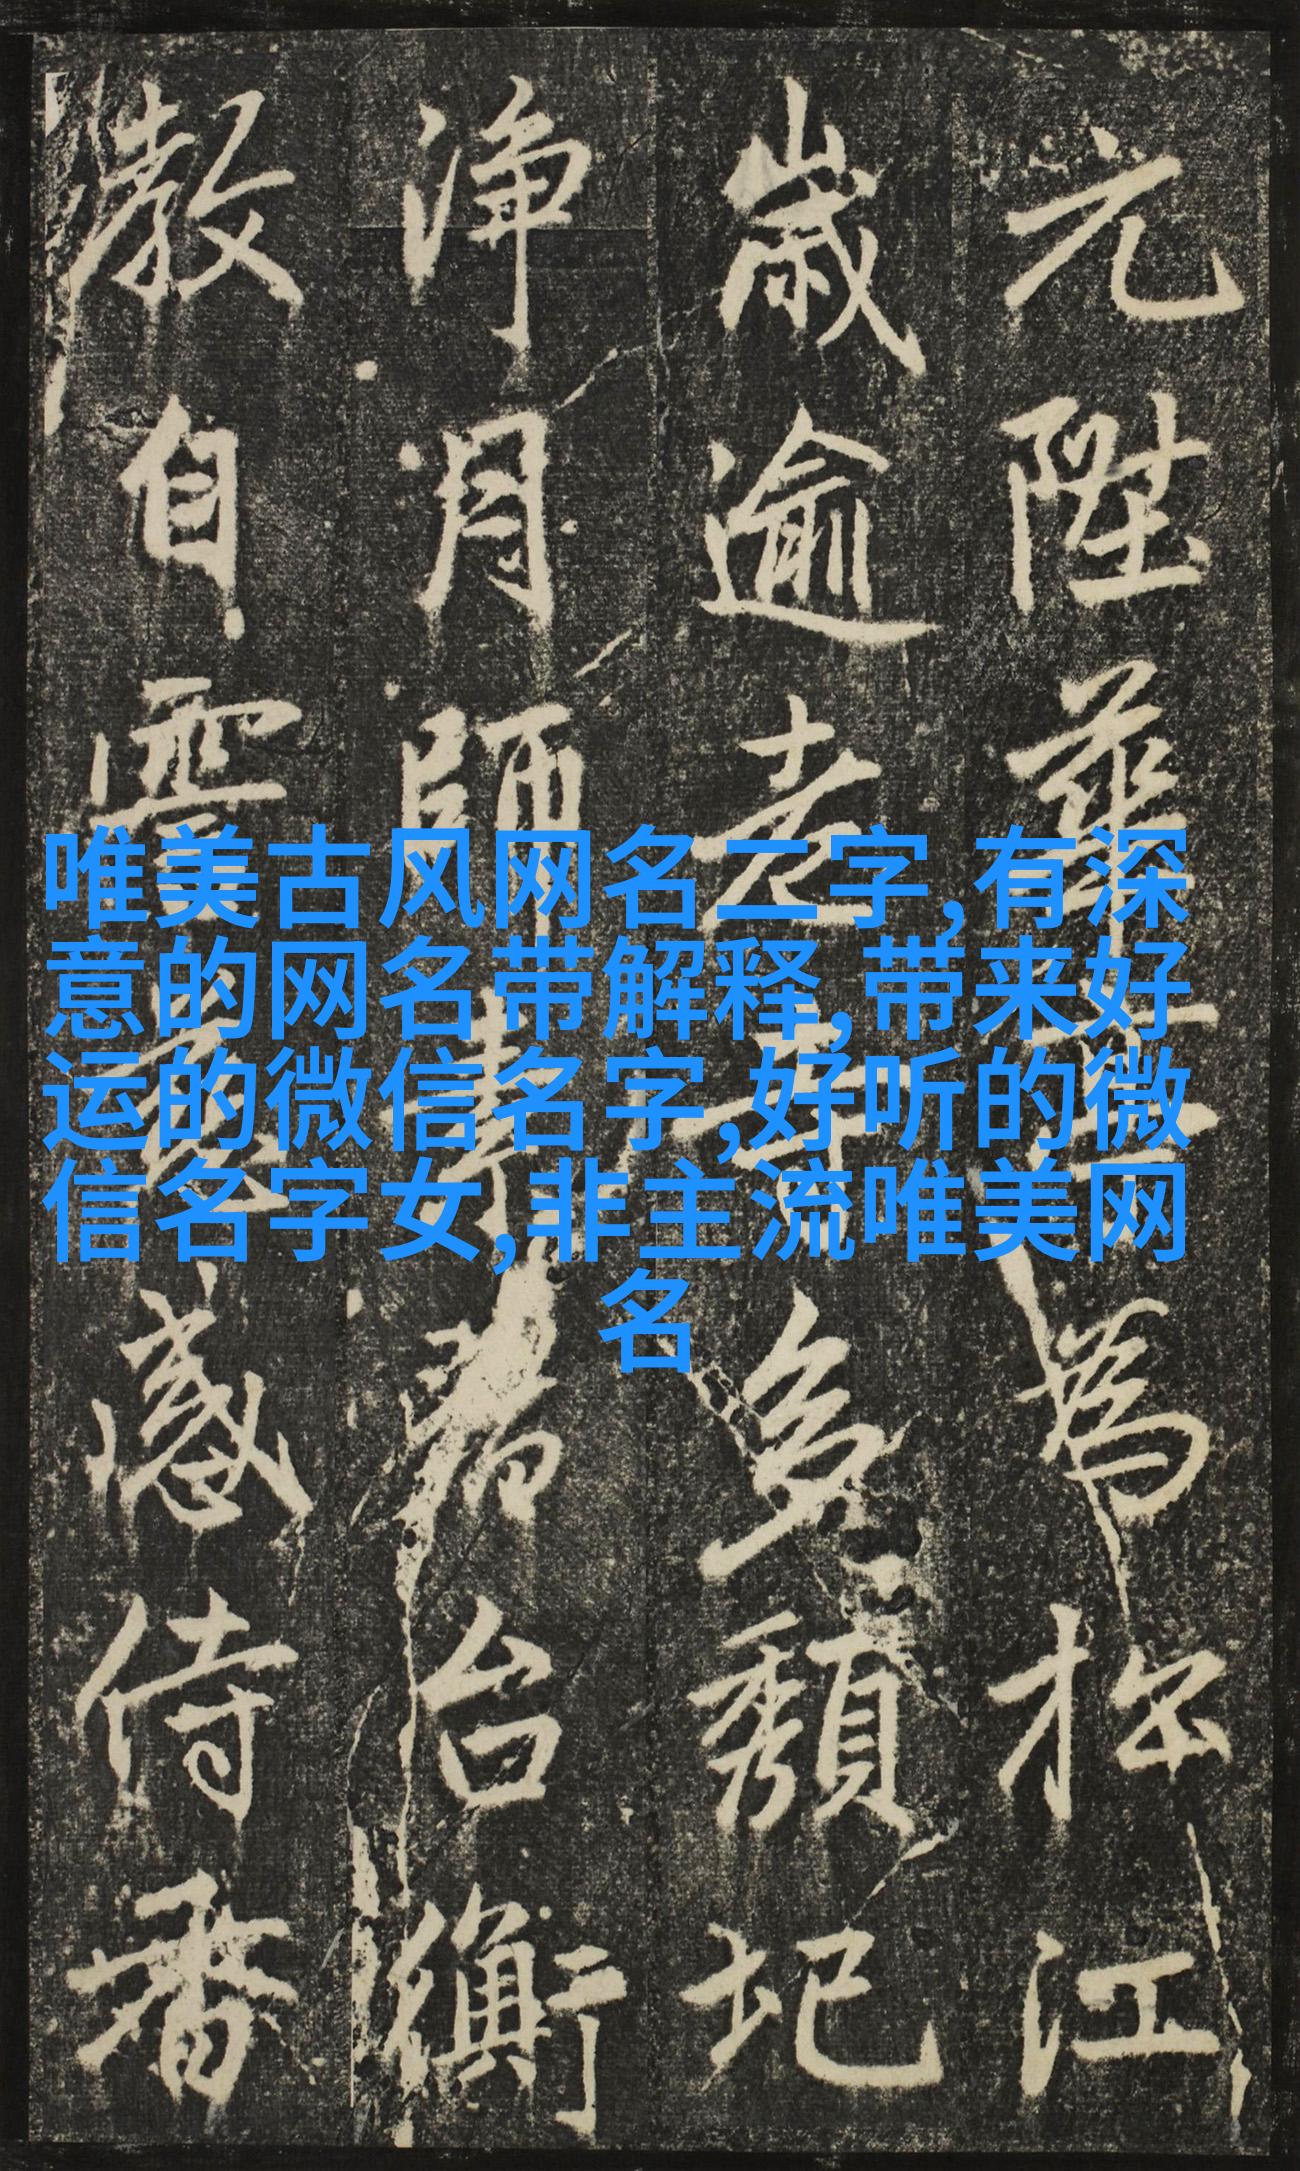 元陞華為扵江
歲逾老多頹圮
淨月師台衡
教自感侍
唯美古风网名二字,有深
意的网名带解释,带来好
运的微信名字,好听的微
信名字女,非主流唯美网
名